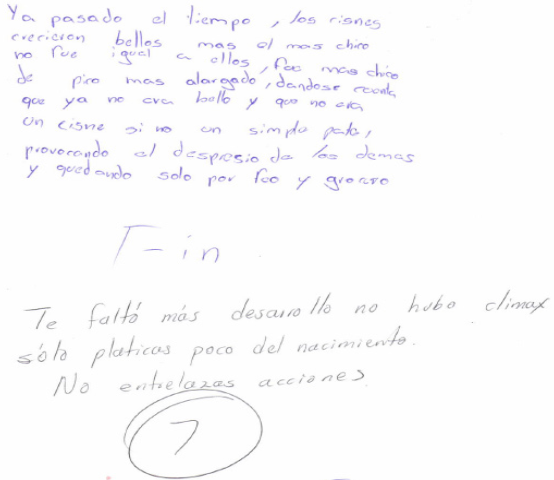 Ya pasado el tiempo, los cisnes
crecieron bellos mas el mas chico
no fue igual a ellos, fue mas chico
de pico mas alargado, dandose cuenta
que ya no era bello y que no era
un cisne si no un simple pato,
provocando el despresio de los demas
y quedando solo por feo y grosero
Fin
Te faltó más desarrollo no hubo climax
sólo platicas poco del nacimiento.
No entrelazas acciones
7